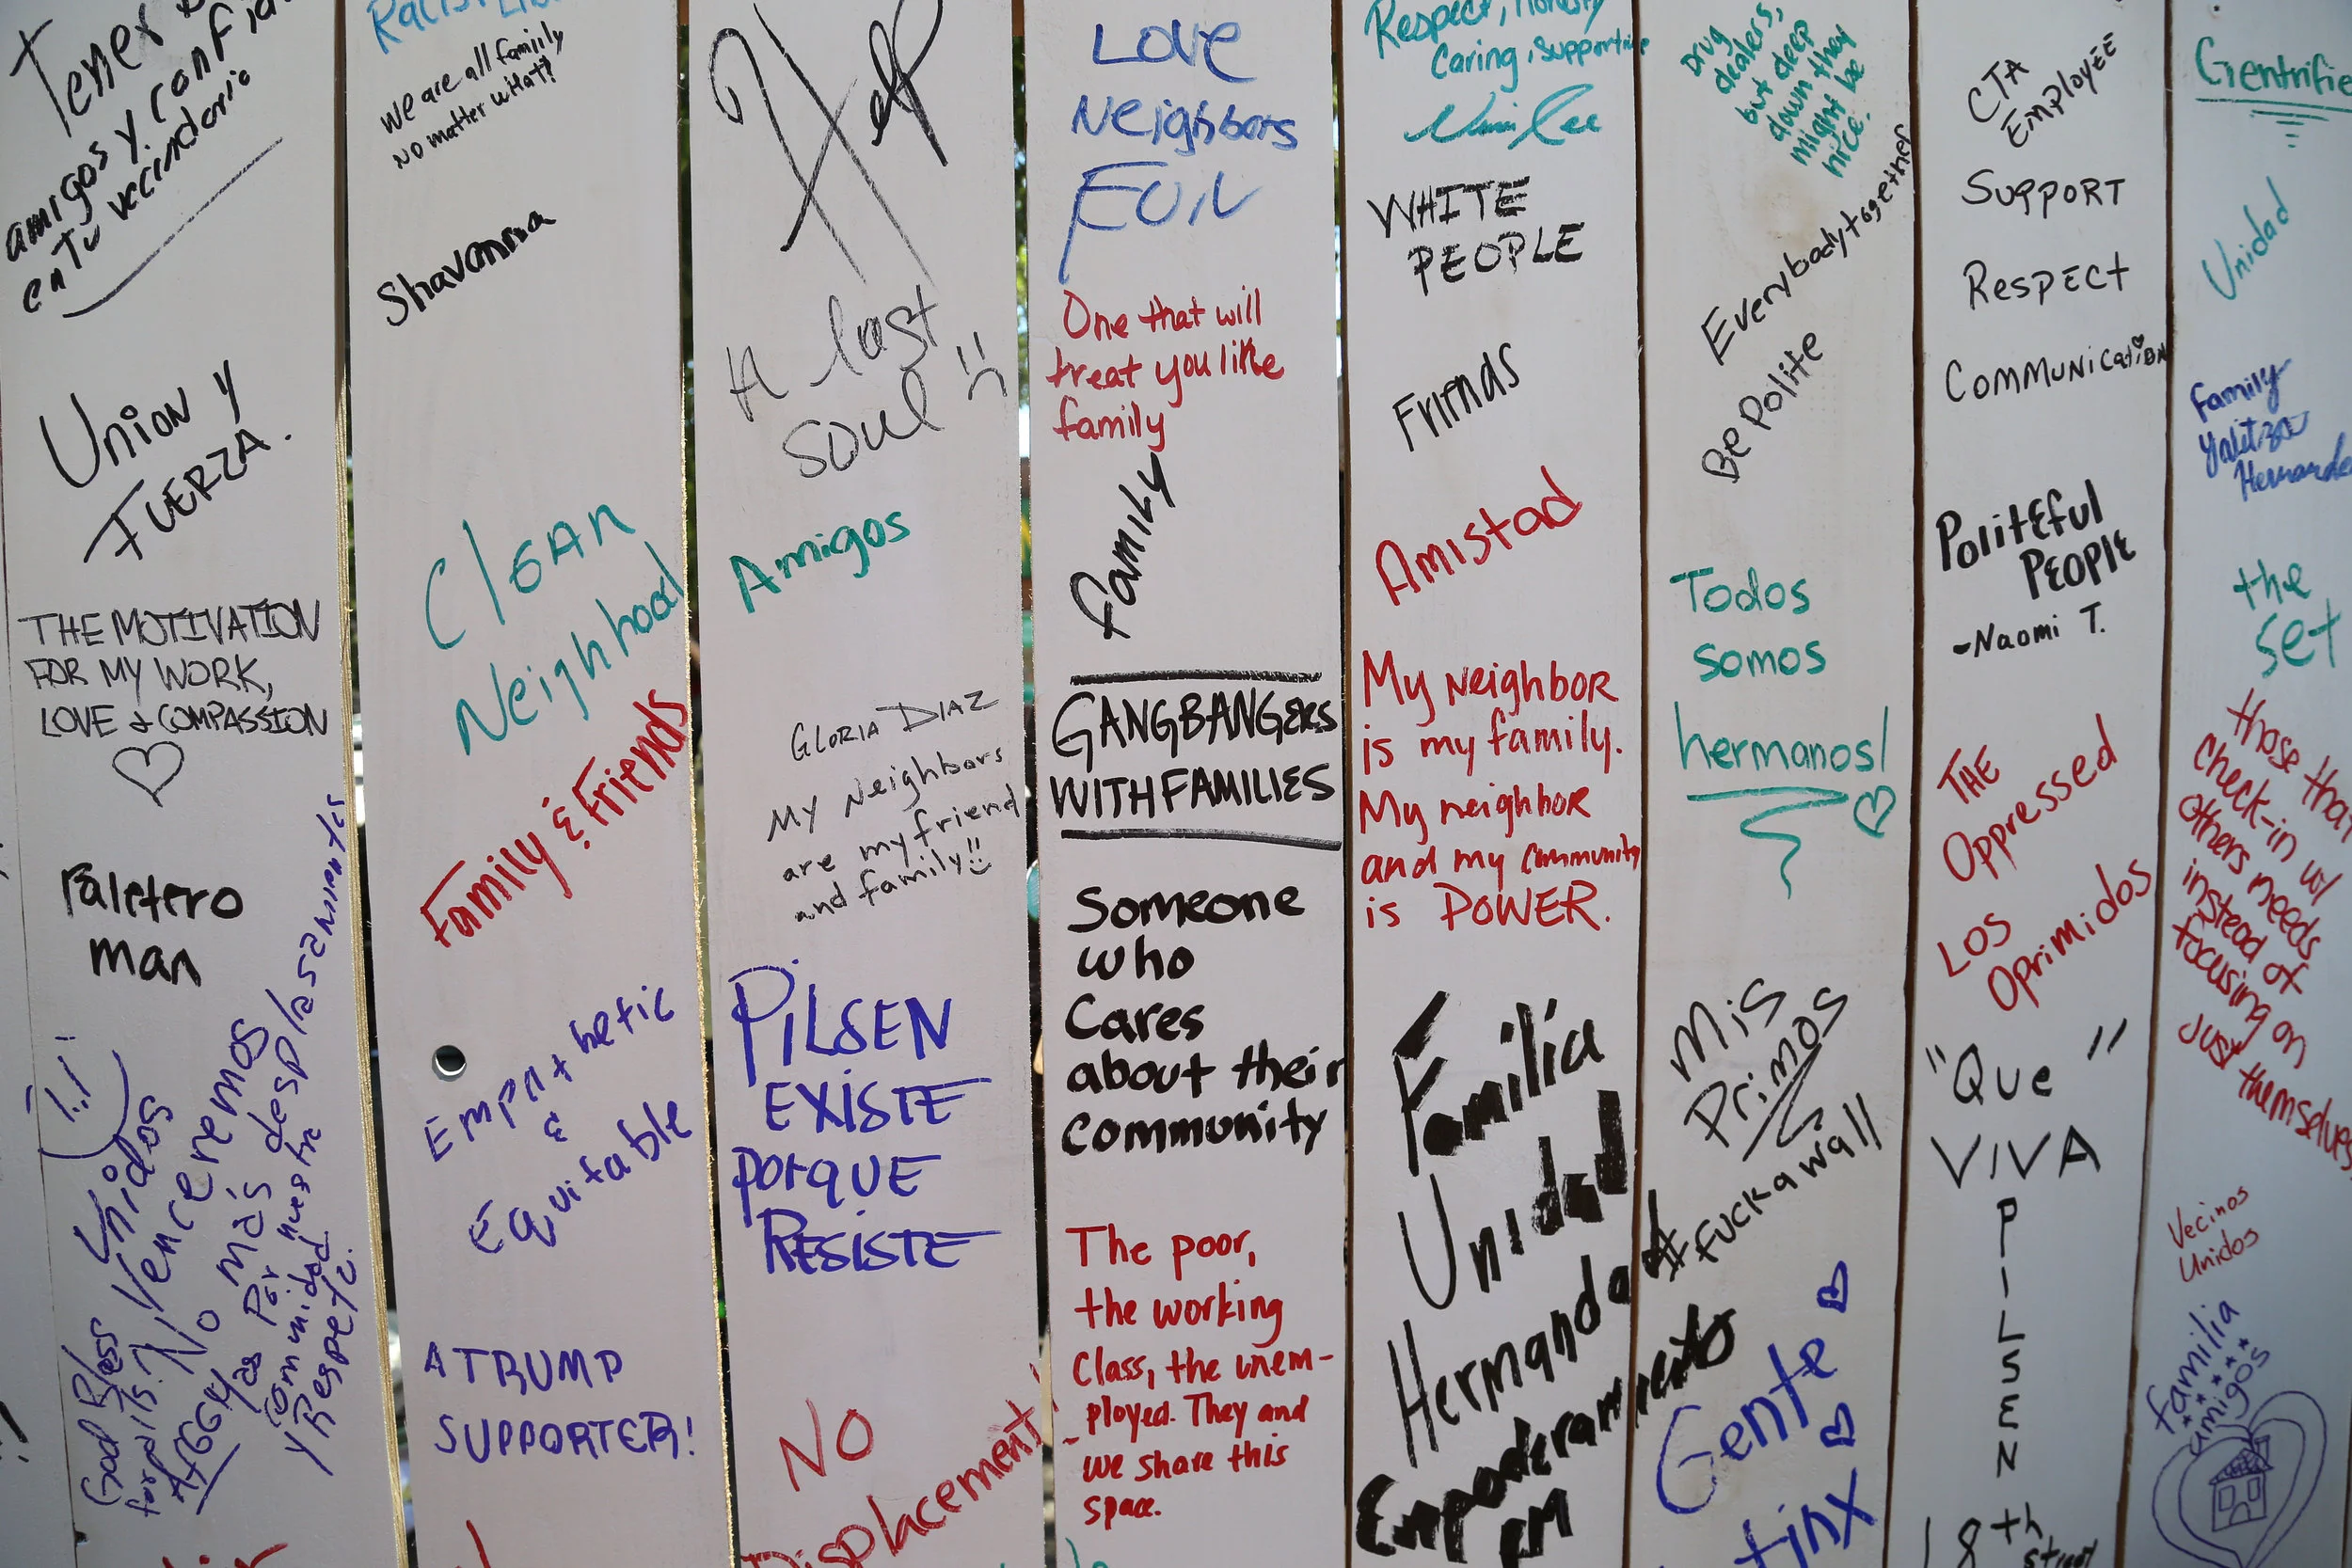 Tener
amigos y confi
en Tu vecindario
Union y
FUERZA.
THE MOTIVATION
FOR MY WORK,
LOVE & COMPASSION
Paletero
man
Unidos
Venceremos
No más desplasamientos
Por nuestra
comunidad
y Respete.
God Bless
for all?
We are all family
No matter what!!
Shavonna
Clean
Neighhood
Family & Friends
Empathetic
&
Equitable
A TRUMP
SUPPORTER!
Help
A lost
soul
Amigos
GLORIA DIAZ
My Neighbors
are my friend
and family!!
PILSEN
EXISTE
PORQUE
RESISTE
NO
Displacement!
Love
Neighbors
FUN
One that will
treat you like
family
Family
GANGBANGERS
WITH FAMILIES
Someone
who
Cares
about their
community
The poor,
the working
Class, the unem-
ployed. They and
we share this
space.
Respect, Honesty
Caring, Supportive
WHITE
PEOPLE
Friends
Amistad
My Neighbor
is my family.
My neighbor
and my community
is POWER.
Familia
Unidad
Hermandad
Empoderamiento
Drug
dealers,
but deep
down they
might be
nice.
Everybody together
Be Polite
Todos
somos
hermanos!
Mis
Primos
#fuckawall
Gente
CTA
Employee
Support
Respect
Communication
Politeful
People
-Naomi T.
THE
Oppressed
LOS
Oprimidos
"Que"
VIVA
P
I
L
S
E
N
18th
Street
Gentrifie
Unidad
Family
Yalitza
Hernande
the
set
those that
check-in w/
others needs
instead of
focusing on
just themselves
Vecinos
Unidos
familia
amigos